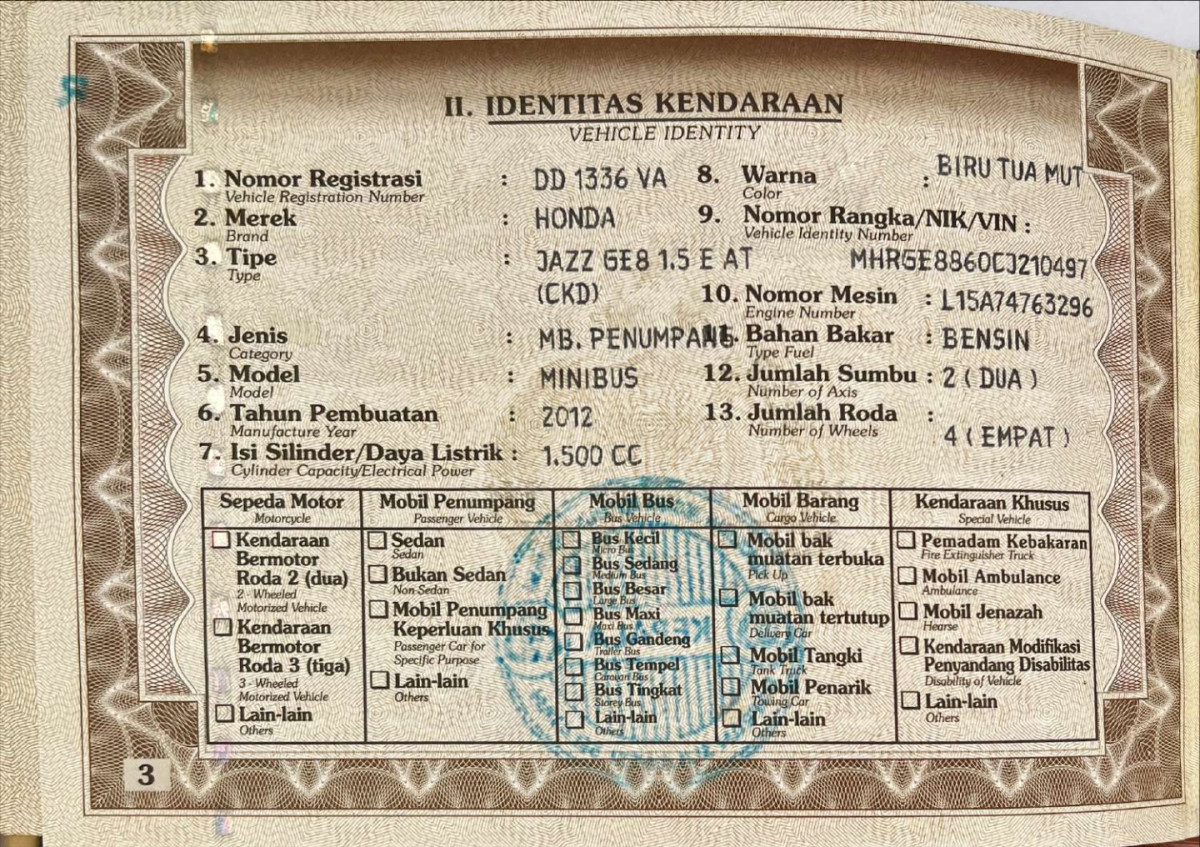 II. IDENTITAS KENDARAAN
VEHICLE IDENTITY
1. Nomor Registrasi : DD 1336 VA
Vehicle Registration Number
2. Merek : HONDA
Brand
3. Tipe : JAZZ GE8 1.5 E AT
Type
(CKD)
4. Jenis : MB. PENUMPANG
Category
5. Model : MINIBUS
Model
6. Tahun Pembuatan : 2012
Manufacture Year
7. Isi Silinder/Daya Listrik : 1.500 CC
Cylinder Capacity/Electrical Power
8. Warna : BIRU TUA MUT
Color
9. Nomor Rangka/NIK/VIN :
Vehicle Identity Number
MHRGE8860CJ210497
10. Nomor Mesin : L15A74763296
Engine Number
11. Bahan Bakar : BENSIN
Type Fuel
12. Jumlah Sumbu : 2 ( DUA )
Number of Axis
13. Jumlah Roda :
Number of Wheels
4 ( EMPAT )
Sepeda Motor
Motorcycle
Kendaraan
Bermotor
Roda 2 (dua)
2 - Wheeled
Motorized Vehicle
Kendaraan
Bermotor
Roda 3 (tiga)
3 - Wheeled
Motorized Vehicle
Lain-lain
Others
Mobil Penumpang
Passenger Vehicle
Sedan
Sedan
Bukan Sedan
Non Sedan
Mobil Penumpang
Keperluan Khusus
Passenger Car for
Specific Purpose
Lain-lain
Others
Mobil Bus
Bus Vehicle
Bus Kecil
Micro Bus
Bus Sedang
Medium Bus
Bus Besar
Large Bus
Bus Maxi
Maxi Bus
Bus Gandeng
Trailer Bus
Bus Tempel
Caravan Bus
Bus Tingkat
Storey Bus
Lain-lain
Others
Mobil Barang
Cargo Vehicle
Mobil bak
muatan terbuka
Pick Up
Mobil bak
muatan tertutup
Delivery Car
Mobil Tangki
Tank Truck
Mobil Penarik
Towing Car
Lain-lain
Others
Kendaraan Khusus
Special Vehicle
Pemadam Kebakaran
Fire Extinguisher Truck
Mobil Ambulance
Ambulance
Mobil Jenazah
Hearse
Kendaraan Modifikasi
Penyandang Disabilitas
Disability of Vehicle
Lain-lain
Others
3